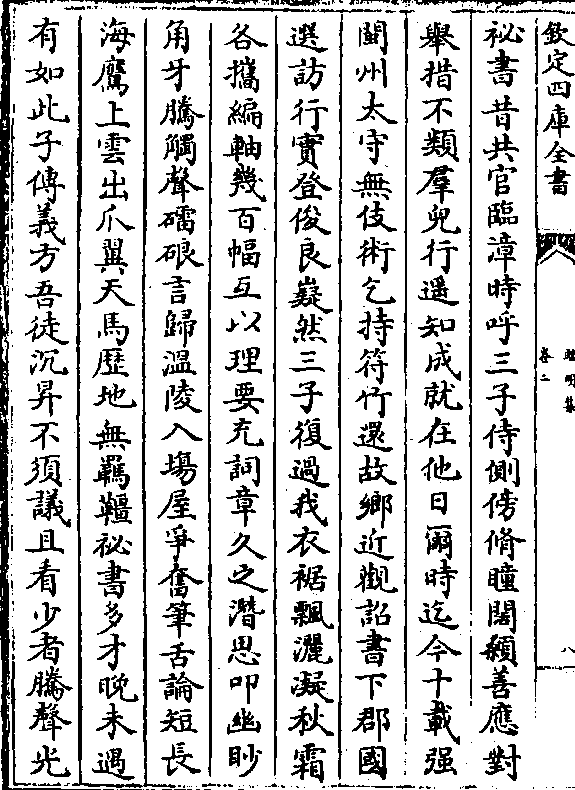 欽定四庫全書
端明集
卷二
八
祕書昔共官臨漳時呼三子侍側傍脩瞳闊額善應對
舉措不類羣兒行遥知成就在他日爾時迄今十載强
閩州太守無伎術乞持符竹還故鄉近觀詔書下郡國
選訪行實登俊良嶷然三子復過我衣裾飄灑凝秋霜
各攜編軸幾百幅互以理要充詞章久之潛思叩幽眇
角牙騰觸聲礌硠言歸溫陵入塲屋爭奮筆舌論短長
海鷹上雲出爪翼天馬歴地無羈韁祕書多才晚未遇
有如此子傳義方吾徒沉昇不須議且看少者騰聲光